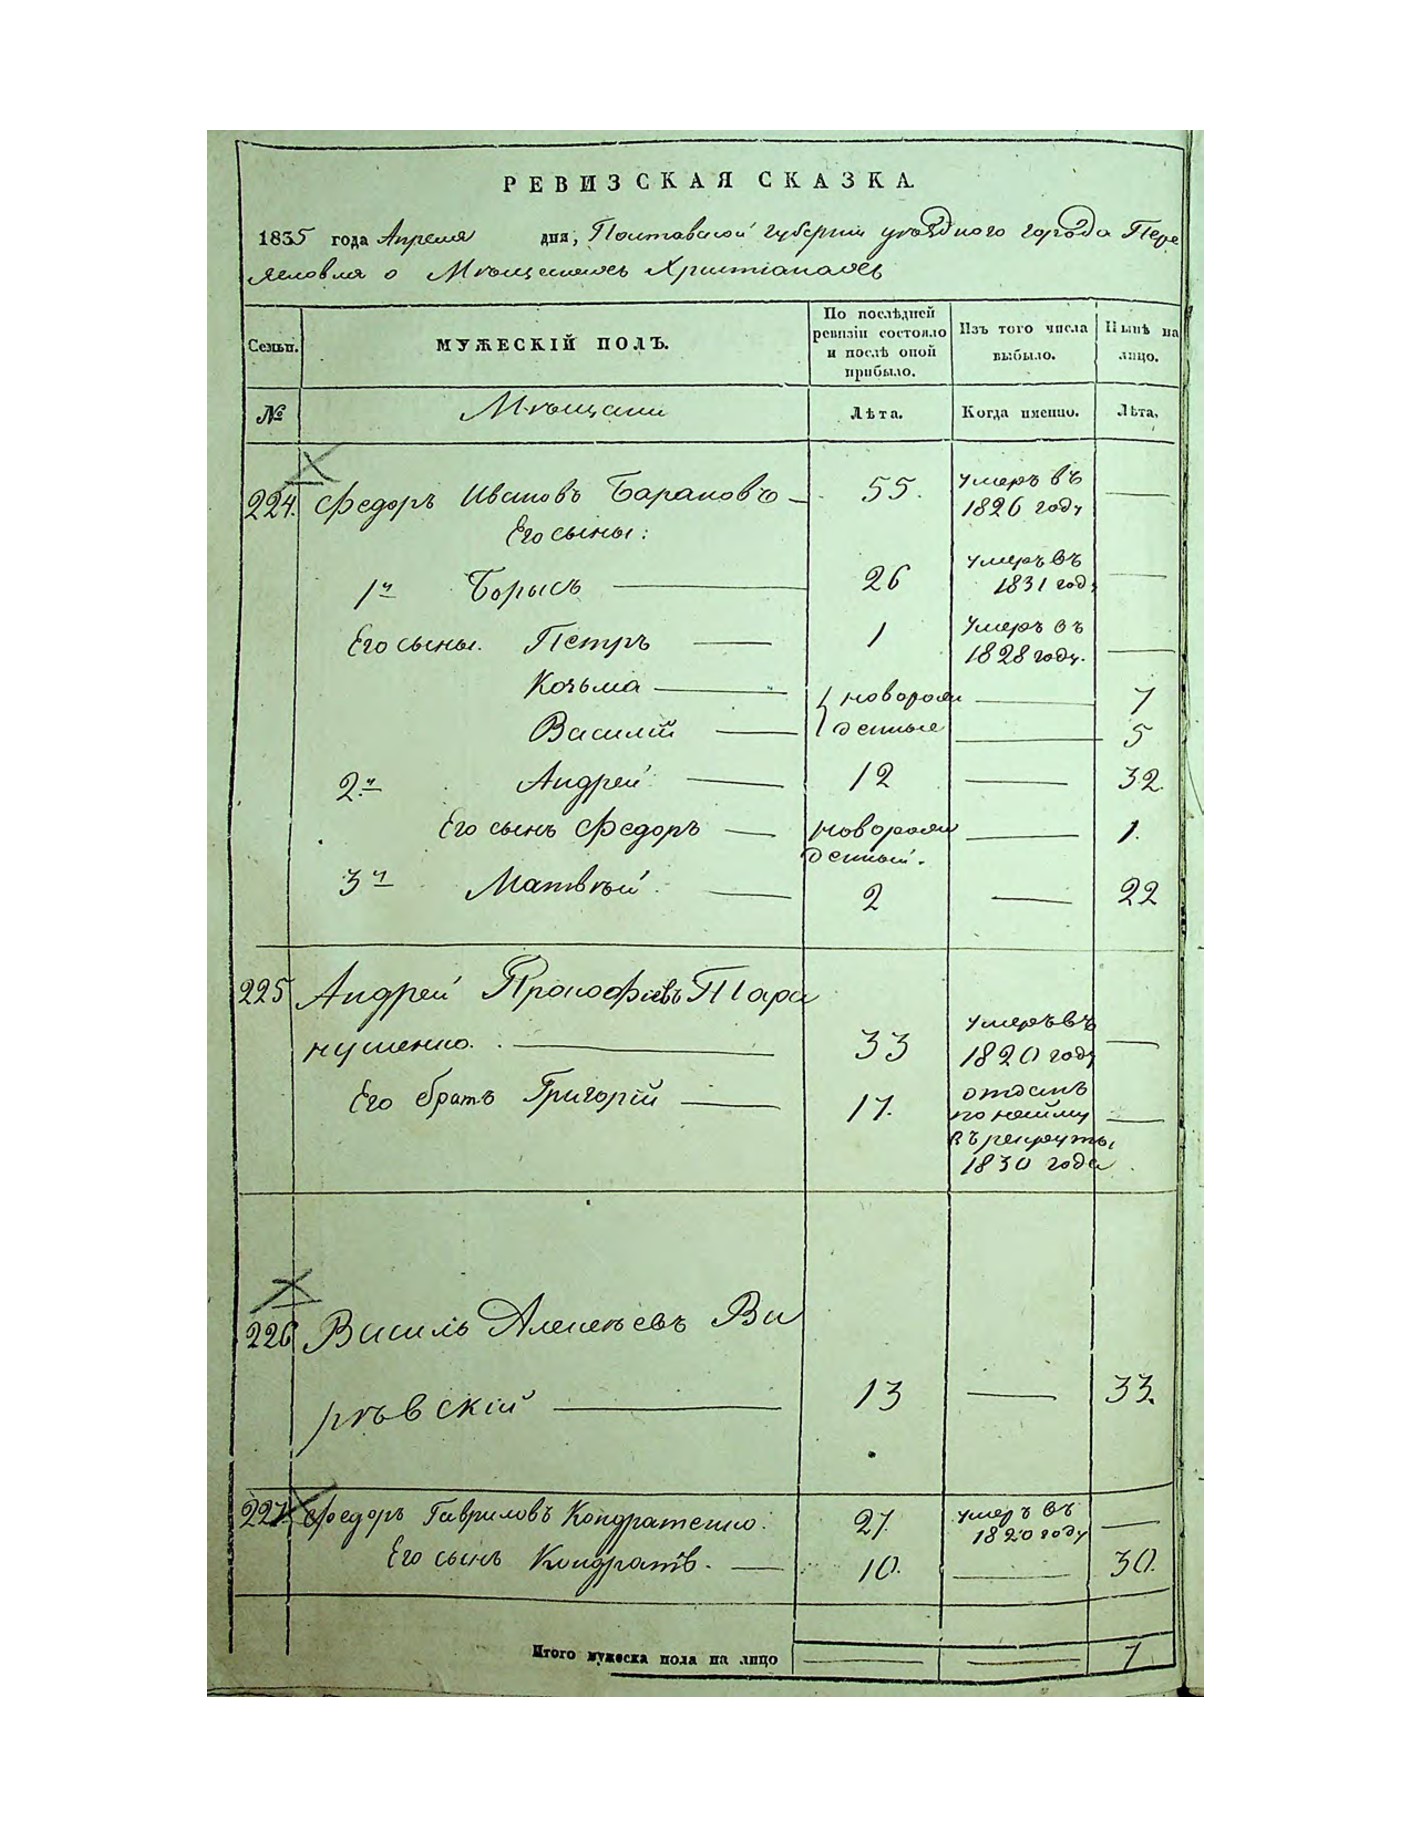 РЕВИЗСКАЯ СКАЗКА.
1835 года Апреля дня, Полтавской губернии уѣзднаго города Пере
яславля о Мѣщанахъ Христіанахъ
Семьи.
МУЖЕСКІЙ ПОЛЪ.
По послѣдней ревизіи состояло и послѣ оной прибыло.
Изъ того числа выбыло.
Нынѣ на лицо.
№
Мѣщани
Лѣта.
Когда именно.
Лѣта.
224. Федоръ Ивановъ Барановъ 55. умеръ въ 1826 году
Его сыны:
1й Борысъ 26 умеръ въ 1831 году
Его сыны. Петръ 1 Умеръ въ 1828 году.
Козьма новорож 7
Василій денные 5
2й Андрей 12 32.
Его сынъ Федоръ новорож
денный. 1.
3й Матвѣй 2 22
225 Андрей Прокофіевъ Тара
нушенко. 33 умеръ въ 1820 году
Его братъ Григорій 17. отданъ
по найму
въ рекруты
1830 года
226 Василь Алексѣевъ Ви
рѣвскій 13 33.
227. Федоръ Гавриловъ Кондратенко. 27. умеръ въ 1820 году
Его сынъ Кондратъ. 10. 30.
Итого мужеска пола на лицо 7